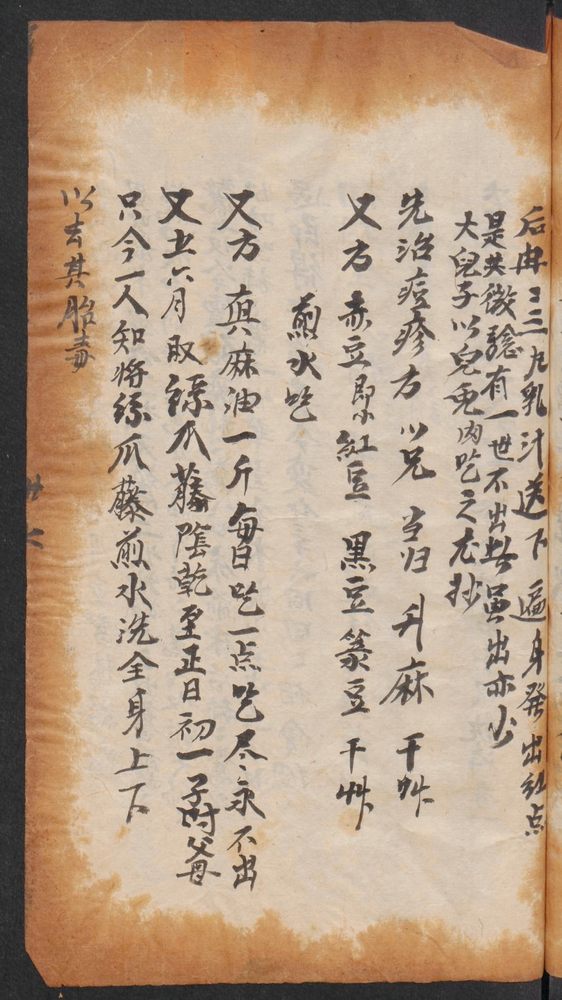 后冉二三九乳汁送下遍身發出紅点
是其微騐有一世不出者虽出亦少
大兒子以兒兎肉吃之尤抄
先治痘疹方 以兄 当归 升麻 干艸
又方 赤豆即小紅豆 黑豆 菉豆 干艸
煎水吃
又方 真麻油一斤每日吃一点吃尽永不出
又五六月取絲瓜藤隂乾至正日初一子时父母
只令一人知将絲瓜藤煎水洗全身上下
以去其胎毒